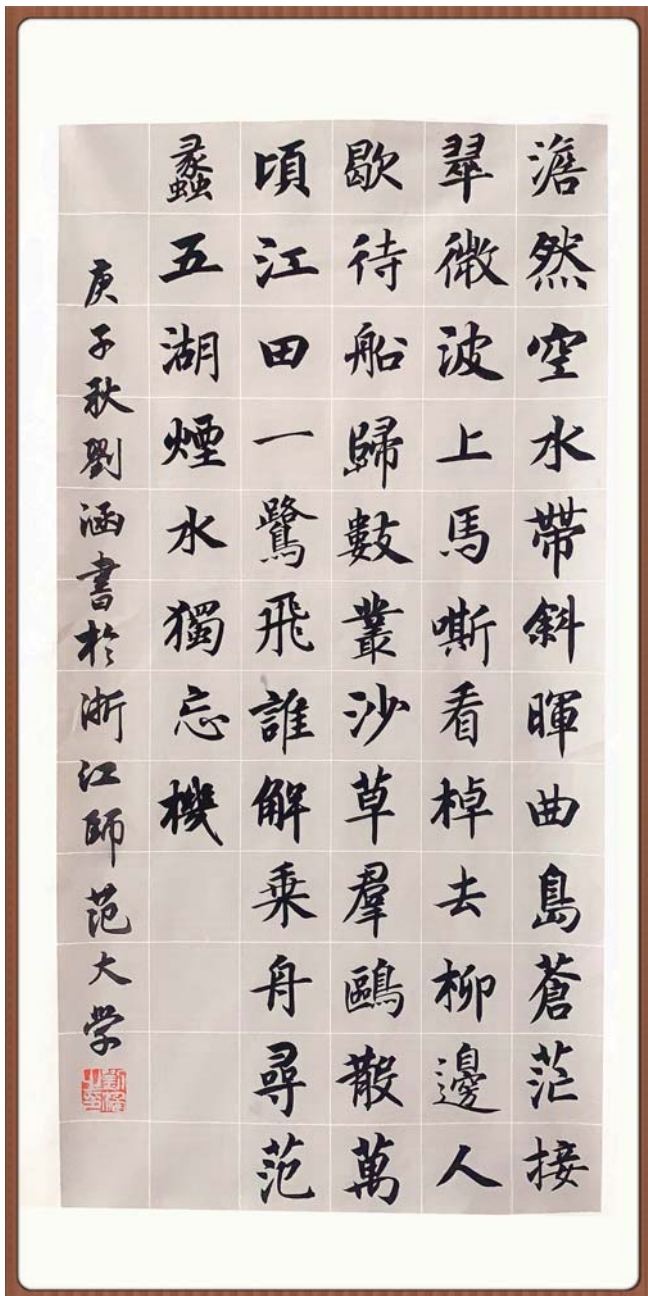 澹然空水帶斜暉曲島蒼茫接
翠微波上馬嘶看棹去柳邊人
歇待船歸數叢沙草羣鷗散萬
頃江田一鷺飛誰解乘舟尋范
蠡五湖煙水獨忘機
庚子秋劉涵書於浙江師范大学